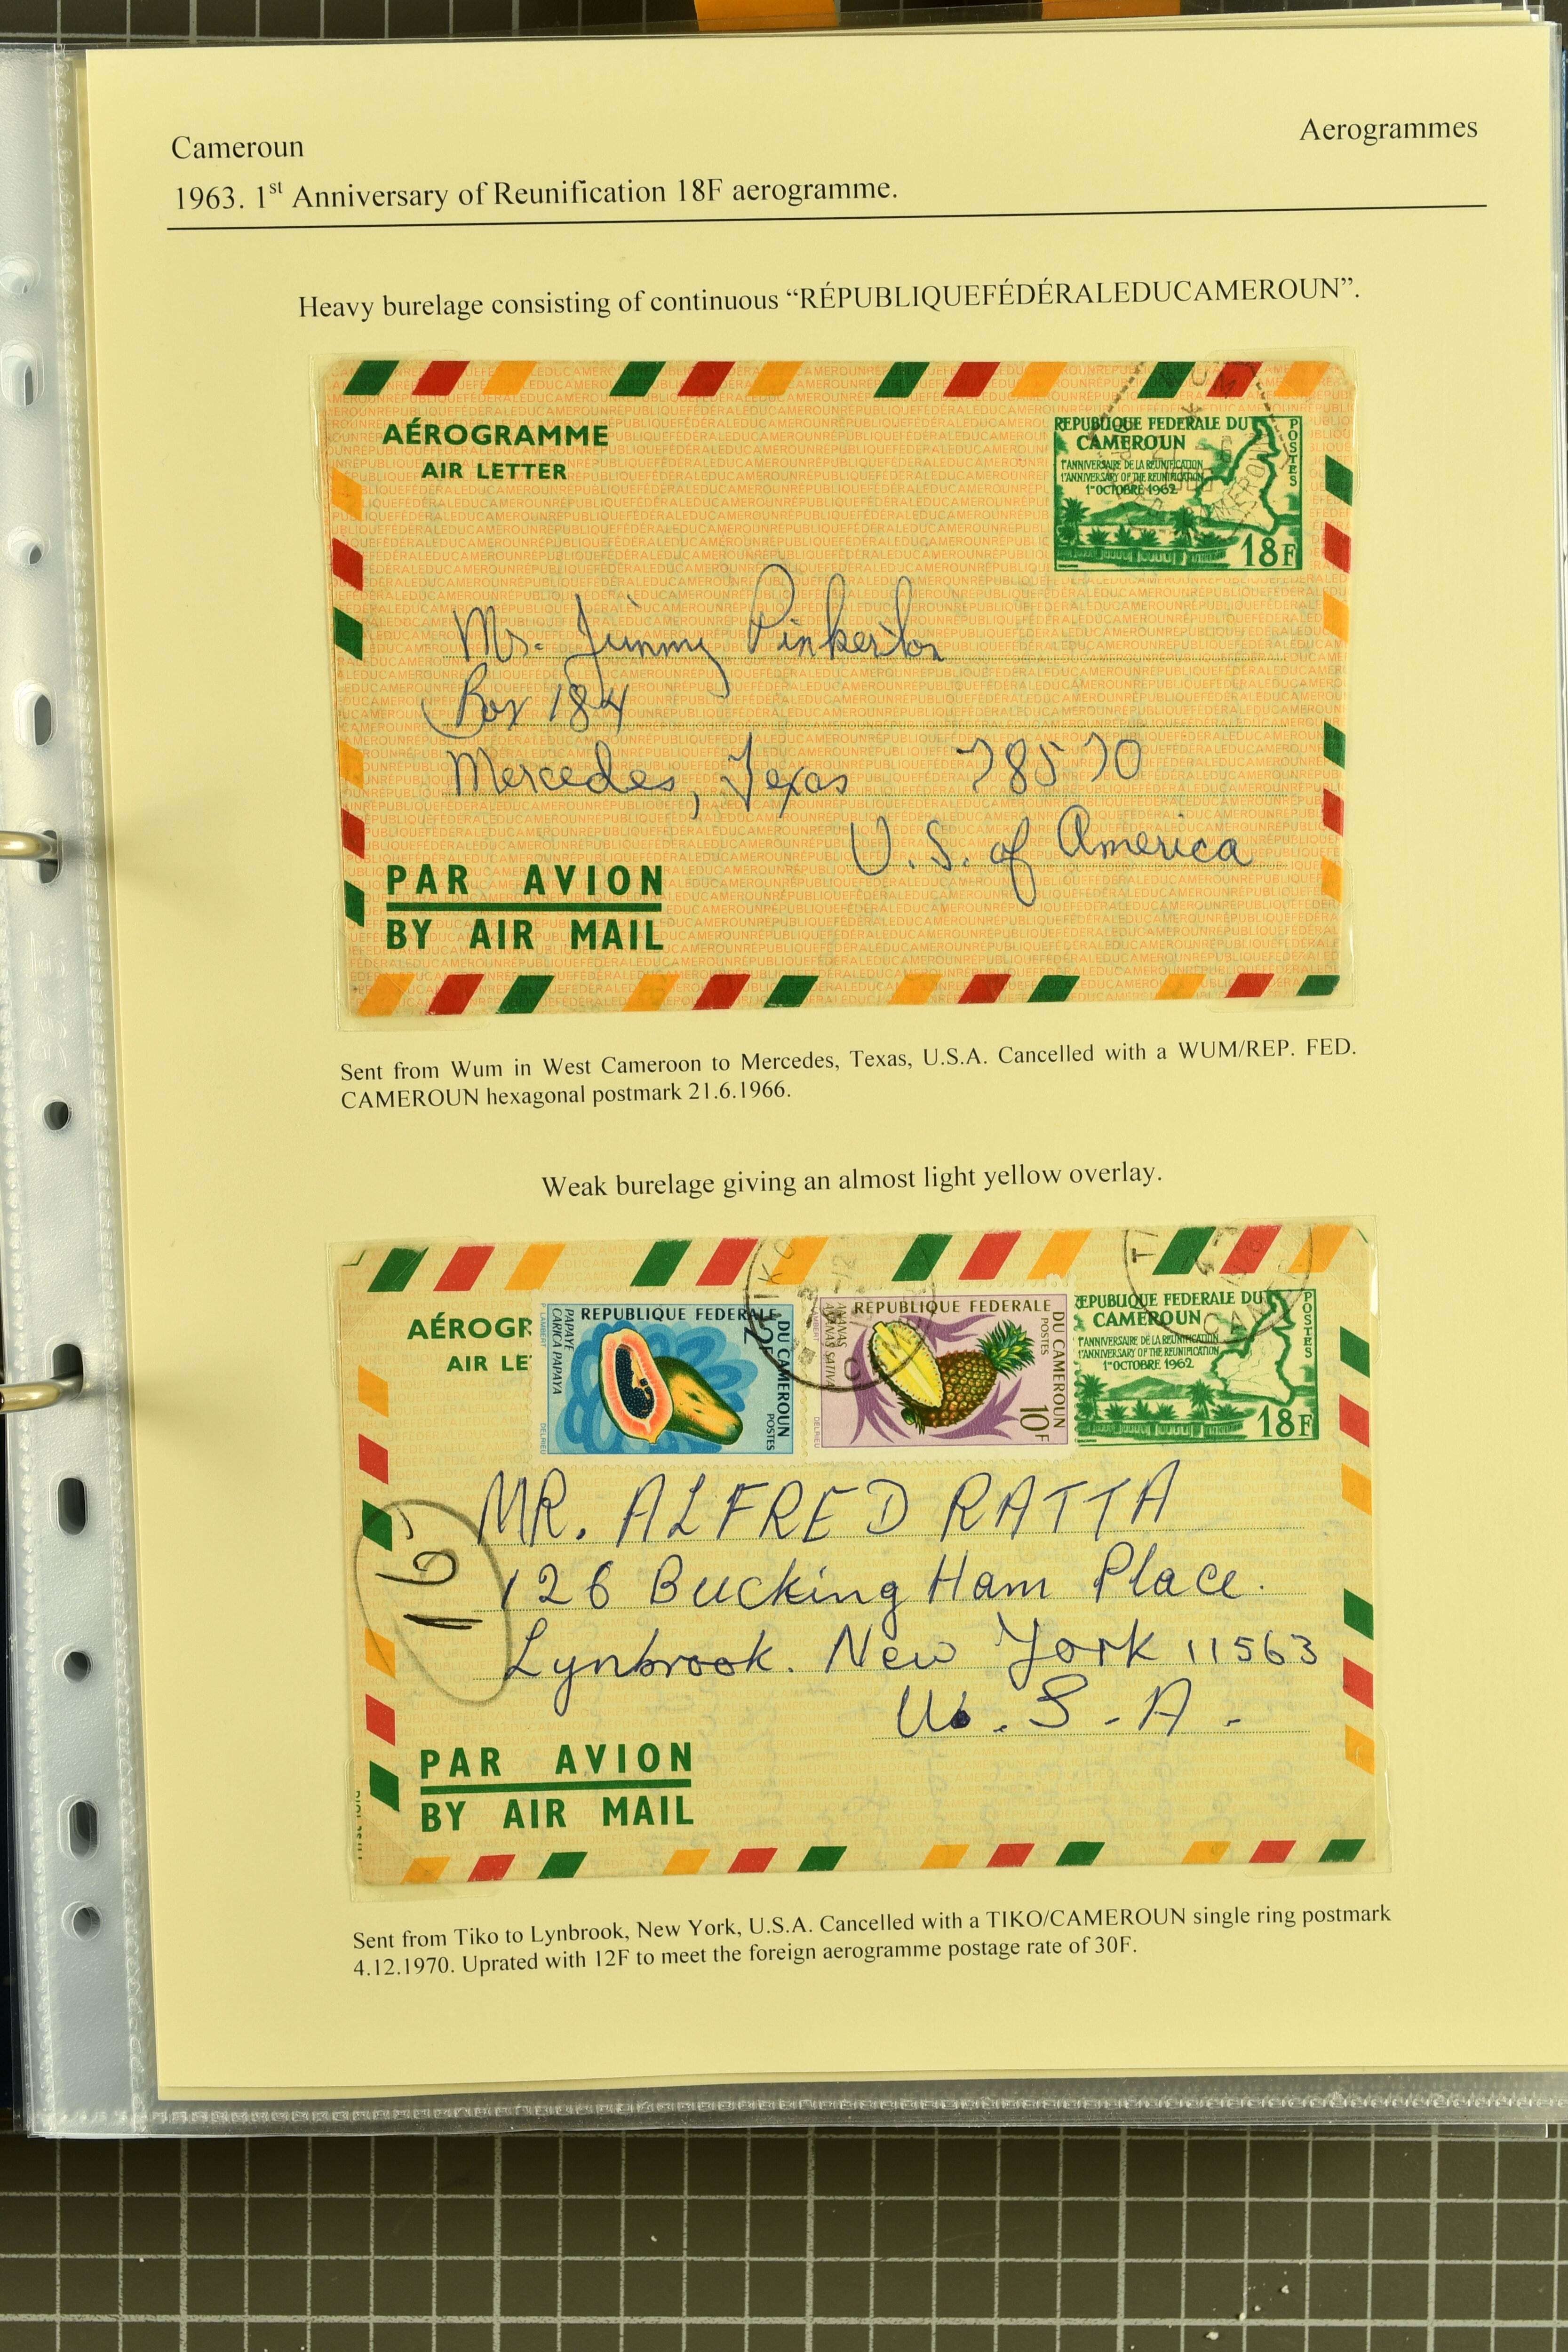 Cameroun
Aerogrammes
1963. 1st Anniversary of Reunification 18F aerogramme.
Heavy burelage consisting of continuous “RÉPUBLIQUEFÉDÉRALEDUCAMEROUN”.
AÉROGRAMME
AIR LETTER
REPUBLIQUE FEDERALE DU
CAMEROUN
POSTES
1er ANNIVERSAIRE DE LA REUNIFICATION
1st ANNIVERSARY OF THE REUNIFICATION
1er OCTOBRE 1962
18F
Mr. Jimmy Pinkerton
Box 184
Mercedes, Texas 78570
U. S. of America
PAR AVION
BY AIR MAIL
Sent from Wum in West Cameroon to Mercedes, Texas, U.S.A. Cancelled with a WUM/REP. FED.
CAMEROUN hexagonal postmark 21.6.1966.
Weak burelage giving an almost light yellow overlay.
AÉROGR
AIR LE
REPUBLIQUE FEDERALE
DU CAMEROUN
POSTES
PAPAYE
CARICA PAPAYA
LAMBERT
DELRIEU
REPUBLIQUE FEDERALE
DU CAMEROUN
POSTES
ANANAS
ANANAS SATIVA
10F
DELRIEU
REPUBLIQUE FEDERALE DU
CAMEROUN
POSTES
1er ANNIVERSAIRE DE LA REUNIFICATION
1st ANNIVERSARY OF THE REUNIFICATION
1er OCTOBRE 1962
18F
TIKO
MR. ALFRED RATTA
126 Bucking Ham Place.
Lynbrook. New York 11563
U. S. A.
16
PAR AVION
BY AIR MAIL
Sent from Tiko to Lynbrook, New York, U.S.A. Cancelled with a TIKO/CAMEROUN single ring postmark
4.12.1970. Uprated with 12F to meet the foreign aerogramme postage rate of 30F.